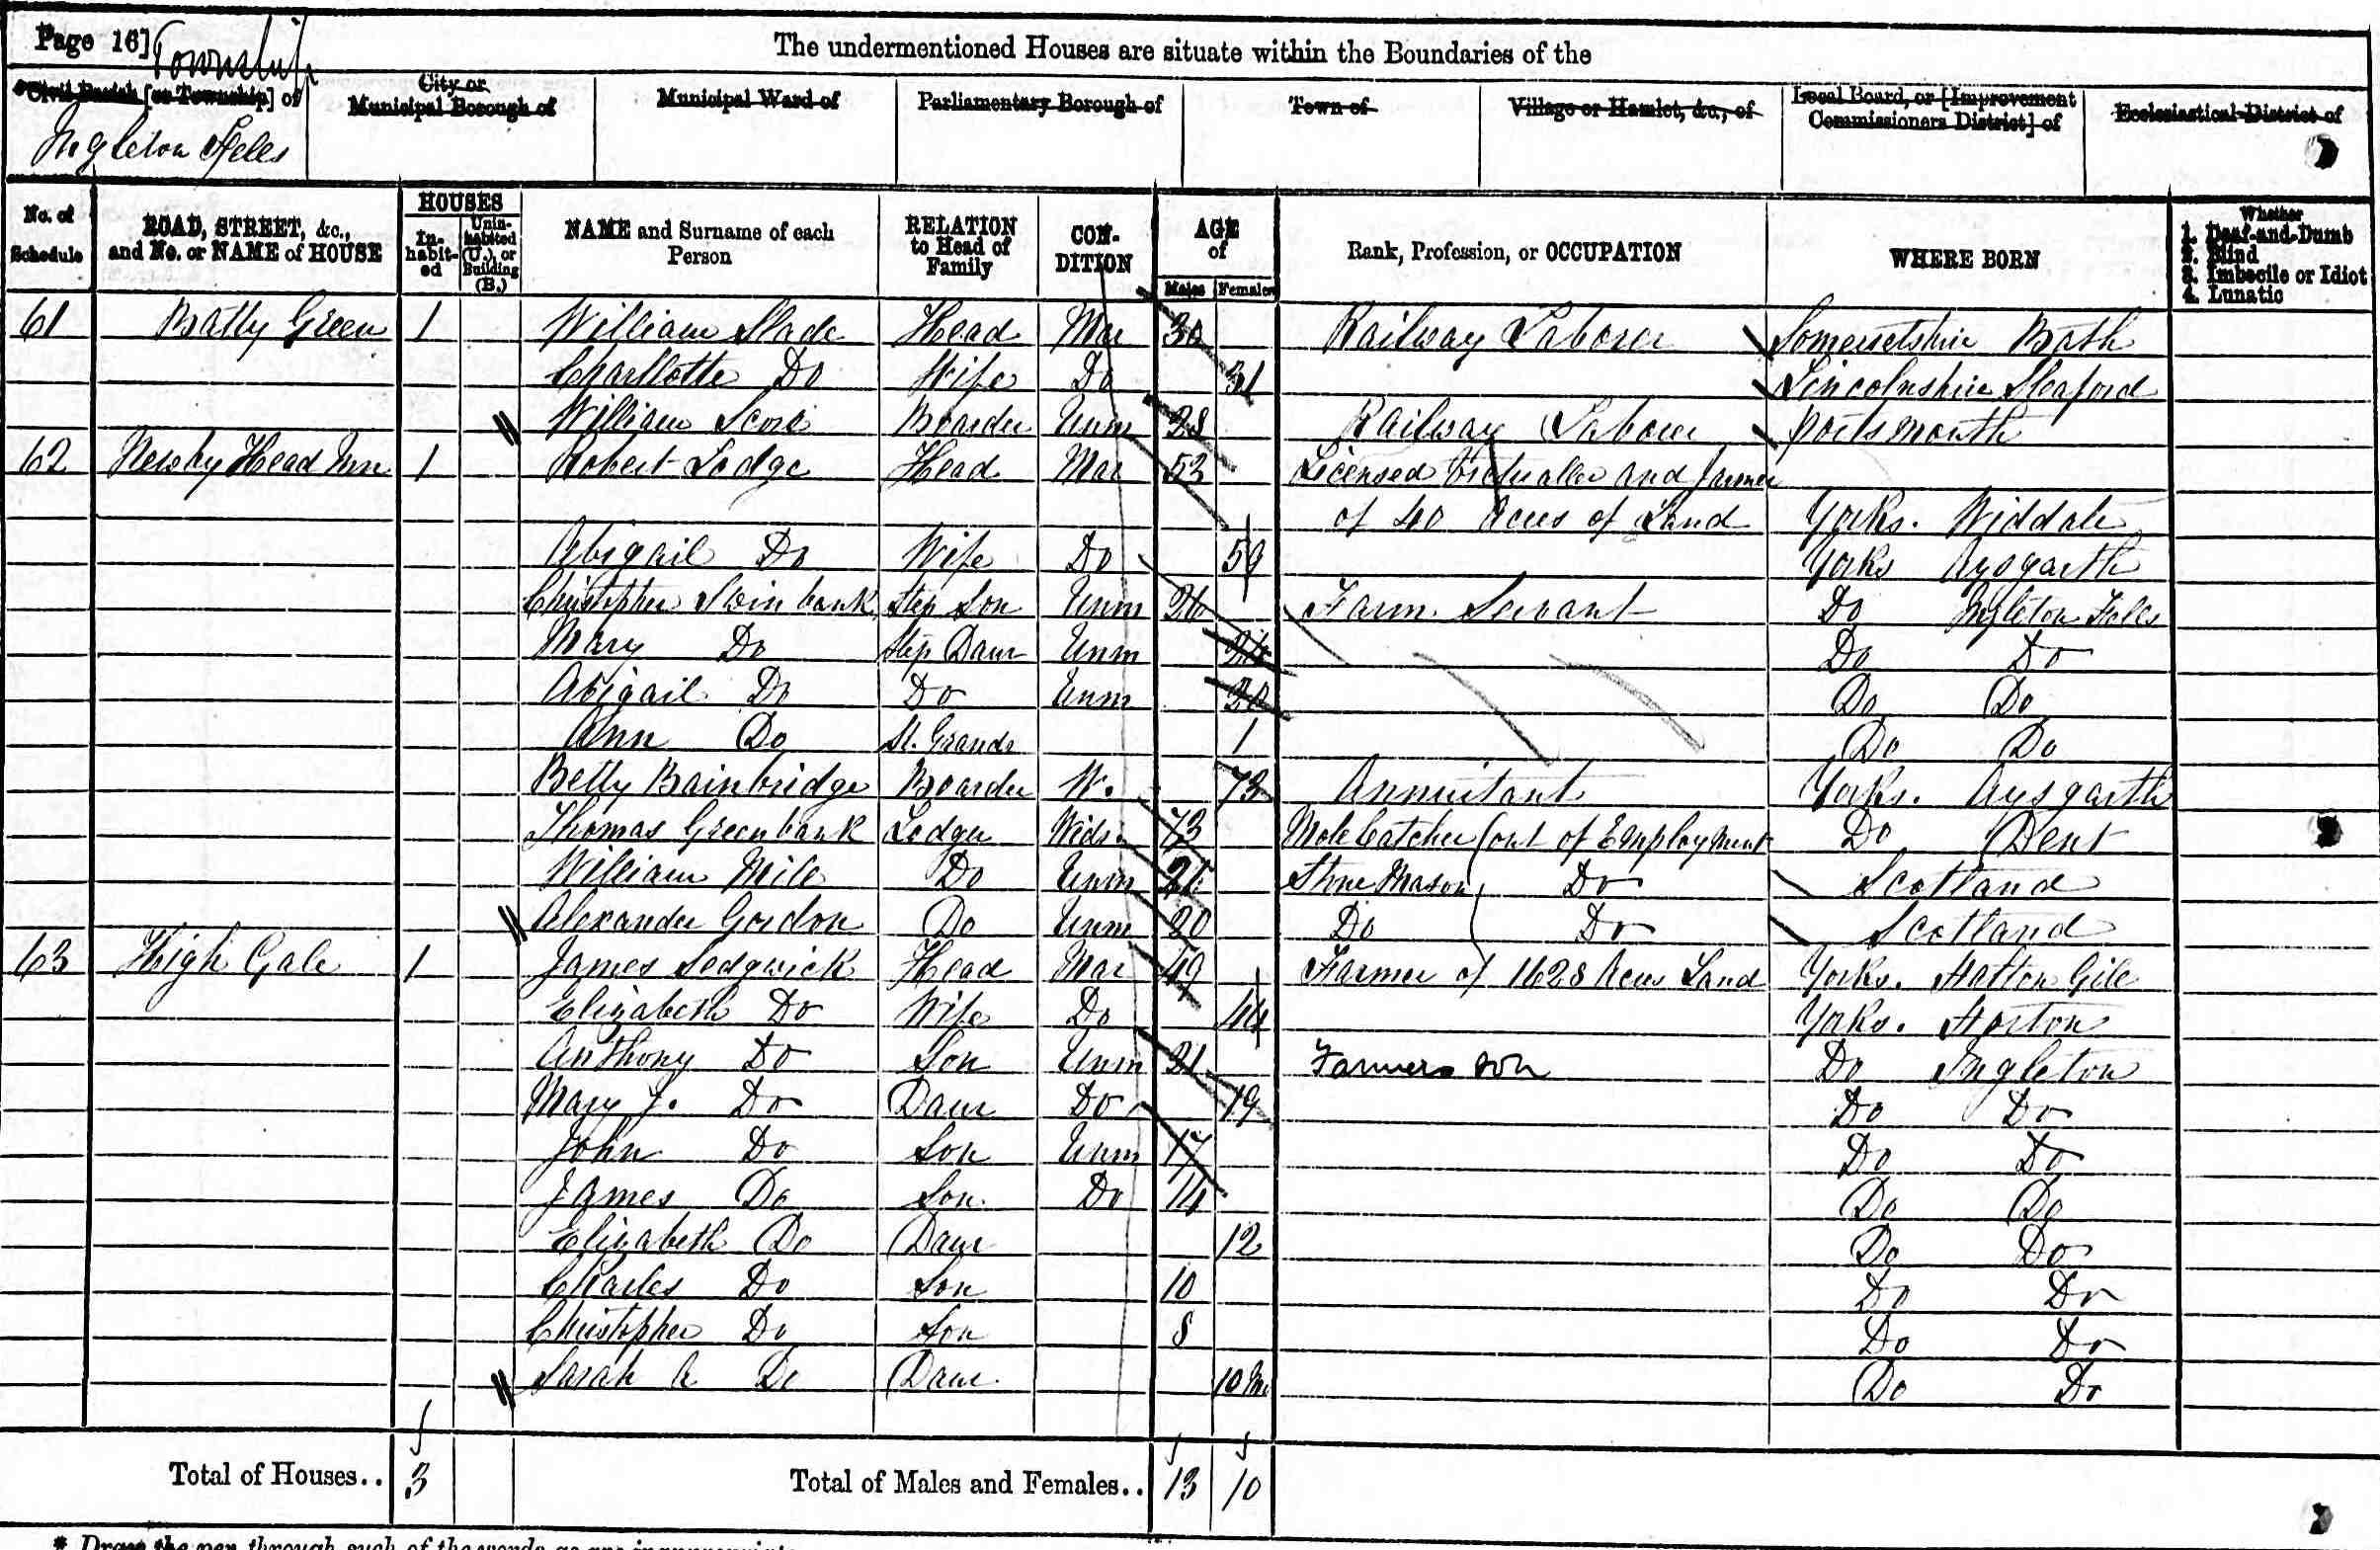 Page 16]
Township
The undermentioned Houses are situate within the Boundaries of the
Civil Parish [or Township] of
City or Municipal Borough of
Municipal Ward of
Parliamentary Borough of
Town of
Village or Hamlet, &c., of
Local Board, or [Improvement Commissioners District] of
Ecclesiastical District of
Ingleton Fells
No. of Schedule
ROAD, STREET, &c., and No. or NAME of HOUSE
HOUSES
In-habit-ed
Unin-habited (U.), or Building (B.)
NAME and Surname of each Person
RELATION to Head of Family
CON-DITION
AGE of
Males Females
Rank, Profession, or OCCUPATION
WHERE BORN
Whether
1. Deaf-and-Dumb
2. Blind
3. Imbecile or Idiot
4. Lunatic
61 Batty Green 1 William Slade Head Mar 30 Railway Laborer Somersetshire Bath
Charllotte Do Wife Do 31 Lincolnshire Sleaford
William Boarder Unm 28 Railway Laborer portsmouth
62 Newby Head Inn 1 Robert Lodge Head Mar 53 Licensed Victualler and Farmer
of 40 Acres of Land Yorks. Widdale
Abigail Do Wife Do 59 Yorks Aysgarth
Christopher Swinbank Step Son Unm 26 Farm Servant Do Ingleton Fells
Mary Do Step Daur Unm 24 Do Do
Abigail Do Do Unm 20 Do Do
Ann Do St. Grandr 1 Do Do
Betty Bainbridge Boarder W. 73 Annuitant Yorks. Aysgarth
Thomas Greenbank Lodger Widr 73 Mole Catcher (out of Employment Do Dent
William Mile Do Unm Stone Mason ( Do Scotland
Alexander Gordon Do Unm 20 Do ( Do Scotland
63 High Gale 1 James Sedgwick Head Mar 49 Farmer of 1628 Acres Land Yorks. Halton Gile
Elizabeth Do Wife Do 44 Yorks. Horton
Anthony Do Son Unm 21 Farmers son Do Ingleton
Mary J. Do Daur Do 19 Do Do
John Do Son Unm 17 Do Do
James Do Son Do 14 Do Do
Elizabeth Do Daur 12 Do Do
Charles Do Son 10 Do Do
Christopher Do Son 8 Do Do
Sarah A Do Daur 10 Mo Do Do
Total of Houses.. 3 Total of Males and Females.. 13 10
* Draw the pen through such of the words as are inappropriate